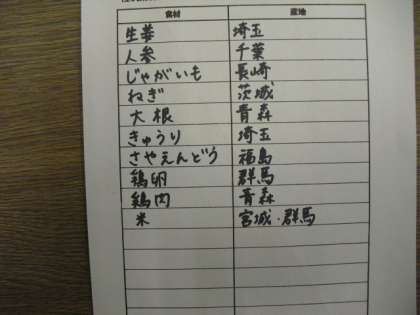 食材 産地
生姜 埼玉
人参 千葉
じゃがいも 長崎
ねぎ 茨城
大根 青森
きゅうり 埼玉
さやえんどう 福島
鶏卵 群馬
鶏肉 青森
米 宮城・群馬